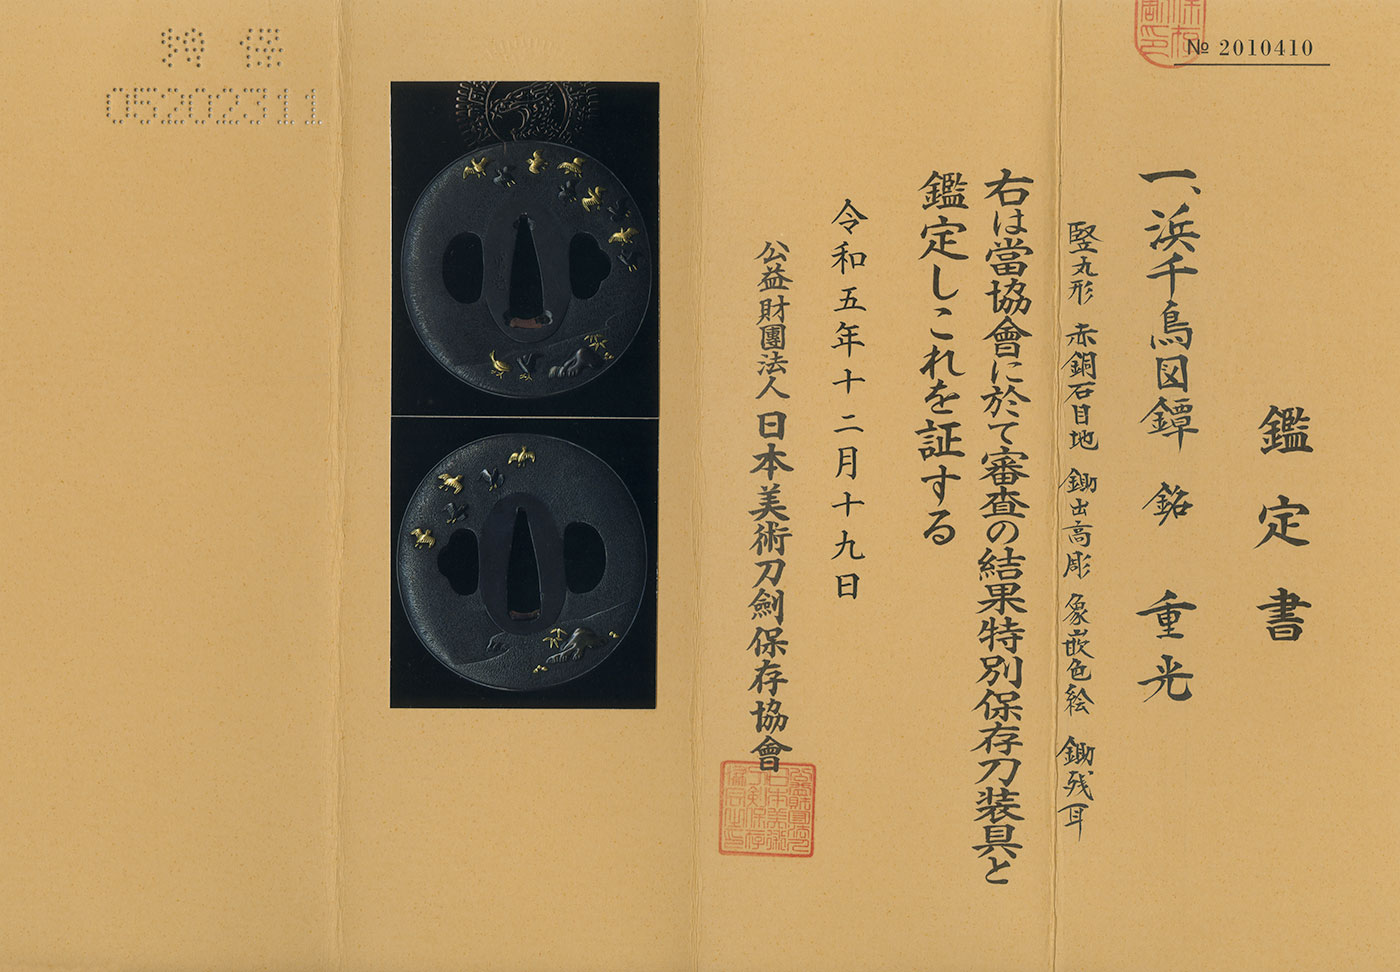 № 2010410
鑑定書
一、浜千鳥図鐔 銘 重光
竪丸形 赤銅石目地 鋤出高彫 象嵌色絵 鋤残耳
右は當協會に於て審査の結果特別保存刀装具と
鑑定しこれを証する
令和五年十二月十九日
公益財團法人 日本美術刀劍保存協會
特 保
05202311